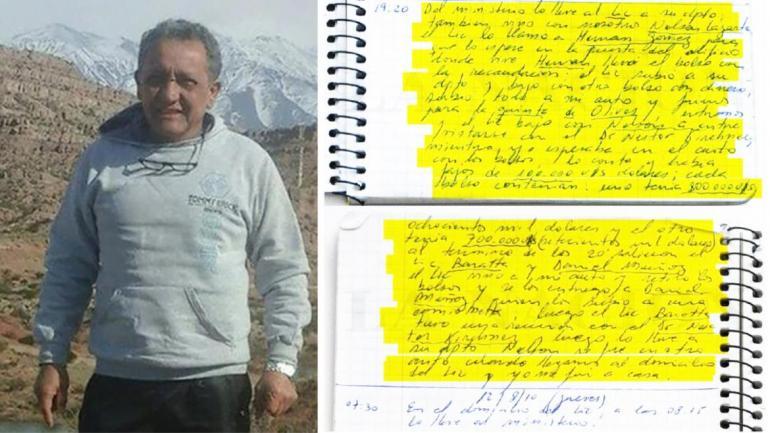 TOMMY ERICK
19:20 Del ministerio lo lleve al Lic a su dpto,
tambien vino con nosotros Nelson Lazarte
el Lic lo llamo a Hernan Gomez para
que lo espere en la puerta del edificio
donde vive Hernan, llevó el bolso con
la recaudacion; el Lic subio a su
dpto y bajo con otro bolso con dinero,
subio todo a mi auto y fuimos
para la quinta de Olivos, entramos
el Lic bajo con Nelson a
con el Dr Nestor Kirchner,
mientras yo esperaba en el auto
con los bolsos, lo conte y habia
fajos de 100.000 U$S dolares; cada
bolso contenian: uno tenia 800.000 U$S
ochocientos mil dolares y el otro
tenia 700.000 U$S setecientos mil dolares
al termino de los 20 salieron el
Lic Baratta y Daniel Muñoz
el Lic vino a mi auto y los
bolsos y se los entrego a Daniel
Muñoz, quien los subio a una
camioneta. Luego el Lic Baratta
tuvo una reunion con el Dr Nes
tor Kirchner y luego lo lleve a
su dpto. Nelson se fue en su
auto cuando llegamos al domicilio
del Lic y yo me fui a casa.
12/8/10 (jueves)
07:30 En el domicilio del Lic, a las 08:15
lo lleve al ministerio.